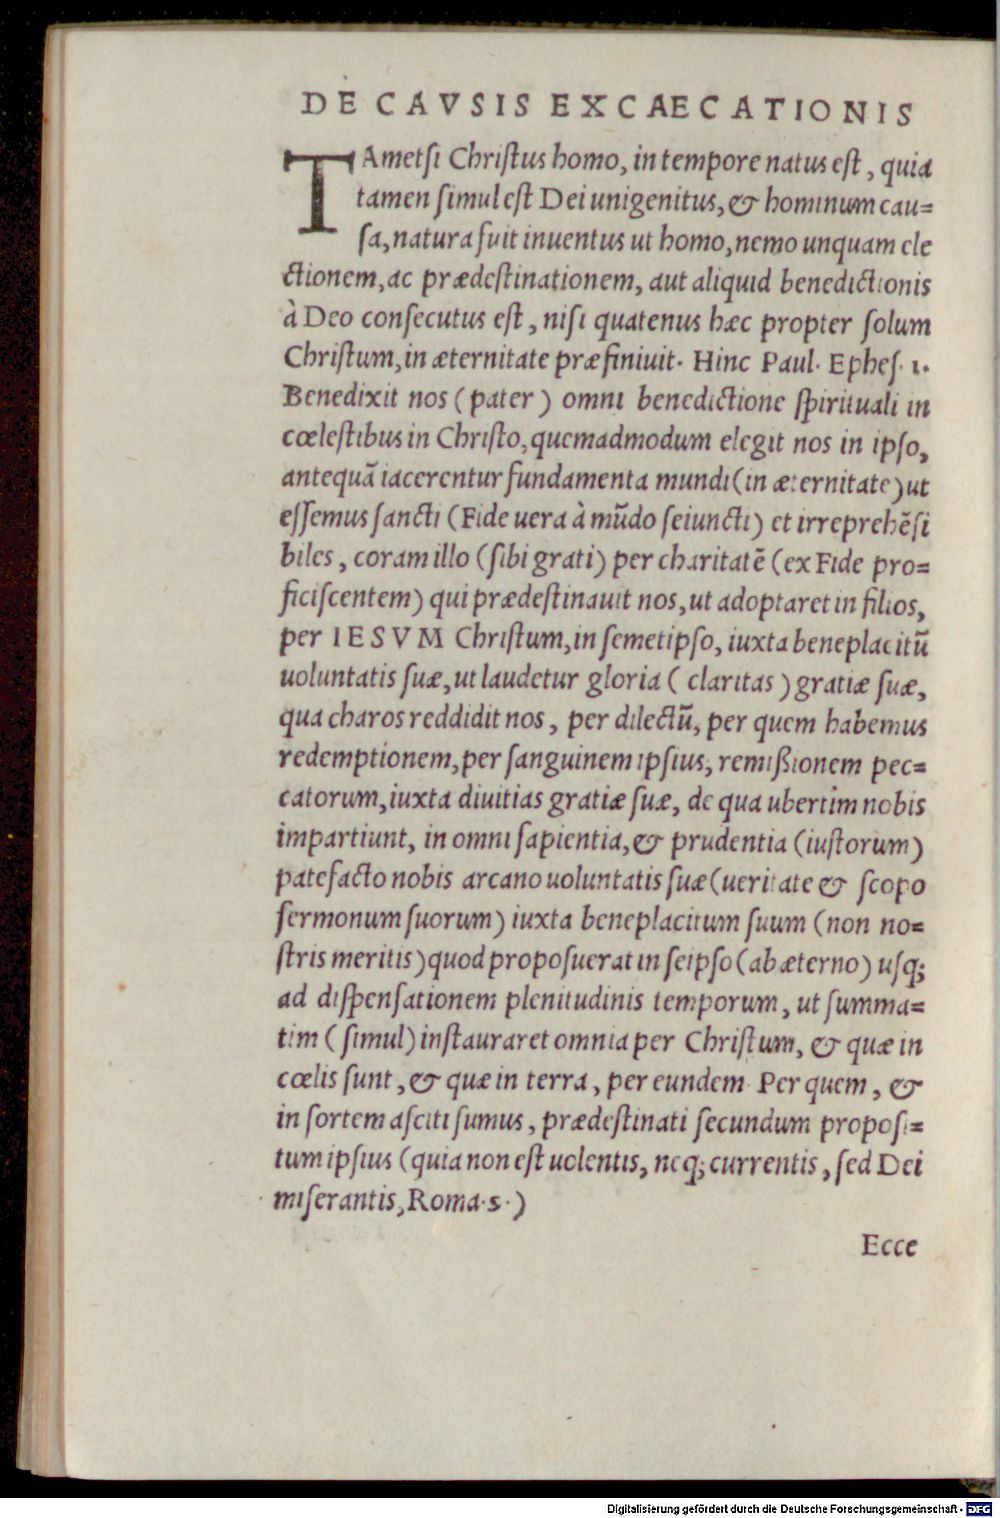 DE CAVSIS EXCAECATIONIS
TAmetſi Chriſtus homo, in tempore natus eſt, quia
tamen ſimul eſt Dei unigenitus, & hominum cau=
ſa, natura fuit inuentus ut homo, nemo unquam ele
ctionem, ac prædeſtinationem, aut aliquid benedictionis
à Deo conſecutus eſt, niſi quatenus hæc propter ſolum
Chriſtum, in æternitate præfiniuit. Hinc Paul. Epheſ. 1.
Benedixit nos (pater) omni benedictione ſpirituali in
cœleſtibus in Chriſto, quemadmodum elegit nos in ipſo,
antequã iacerentur fundamenta mundi (in æternitate) ut
eſſemus ſancti (Fide uera à mũdo ſeiuncti) et irreprehẽſi
biles, coram illo (ſibi grati) per charitatẽ (ex Fide pro=
ficiſcentem) qui prædeſtinauit nos, ut adoptaret in filios,
per IESVM Chriſtum, in ſemetipſo, iuxta beneplacitũ
uoluntatis ſuæ, ut laudetur gloria (claritas) gratiæ ſuæ,
qua charos reddidit nos, per dilectũ, per quem habemus
redemptionem, per ſanguinem ipſius, remißionem pec=
catorum, iuxta diuitias gratiæ ſuæ, de qua ubertim nobis
impartiunt, in omni ſapientia, & prudentia (iuſtorum)
patefacto nobis arcano uoluntatis ſuæ (ueritate & ſcopo
ſermonum ſuorum) iuxta beneplacitum ſuum (non no=
ſtris meritis) quod propoſuerat in ſeipſo (ab æterno) uſq;
ad diſpenſationem plenitudinis temporum, ut ſumma=
tim (ſimul) inſtauraret omnia per Chriſtum, & quæ in
cœlis ſunt, & quæ in terra, per eundem. Per quem, &
in ſortem aſciti ſumus, prædeſtinati ſecundum propoſi=
tum ipſius (quia non eſt uolentis, neq; currentis, ſed Dei
miſerantis, Roma. s.)
Ecce
Digitalisierung gefördert durch die Deutsche Forschungsgemeinschaft - DFG